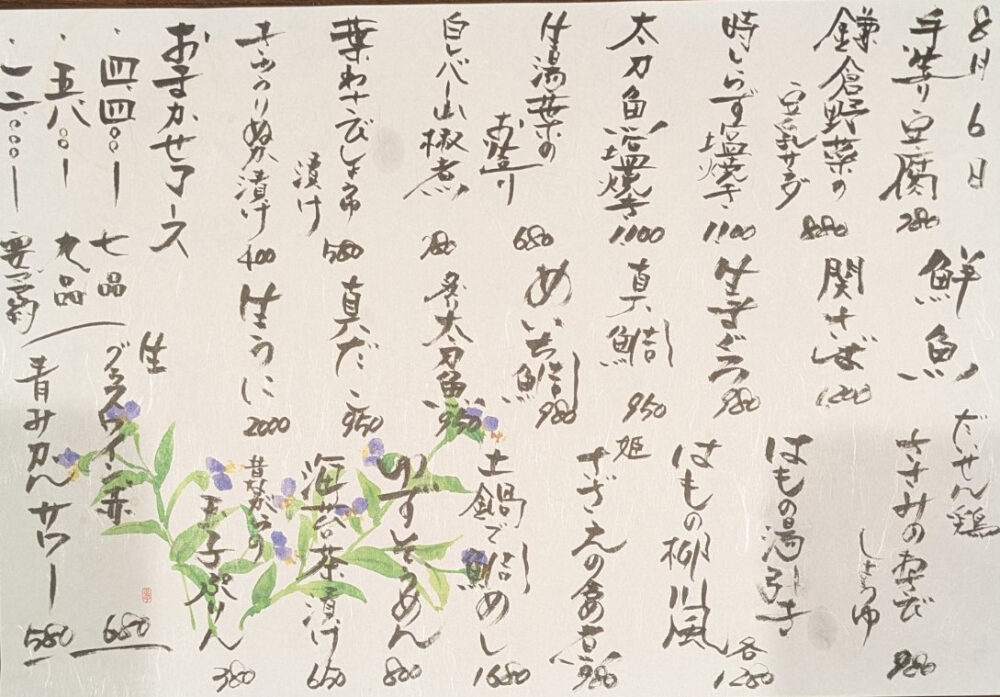 8月6日
手造り豆腐 780
鎌倉野菜の
豆乳サラダ 880
時しらず塩焼き 1100
太刀魚塩焼き 1100
生湯葉の
お造り 680
白レバー山椒煮 780
葉わさびしょうゆ
漬け 580
きゅうりぬか漬け 400
おまかせコース
・四、四〇〇ー 七品
・五、八〇〇ー 九品
・一二、〇〇〇ー 要予約
鮮魚
関さば 1200
生まぐろ 980
真鯛 950
めいち鯛 980
炙り太刀魚 950
真だこ 950
生うに 2000
だいせん鶏
ささみのわさび
しょうゆ 980
はもの湯引き
はもの柳川風 各1280
姫
さざえの含め煮 980
土鍋で鯛めし 1680
のずそうめん 800
海苔茶漬け 650
昔ながらの
玉子ぷりん 380
生
グラスワイン赤 680
青みかんサワー 580